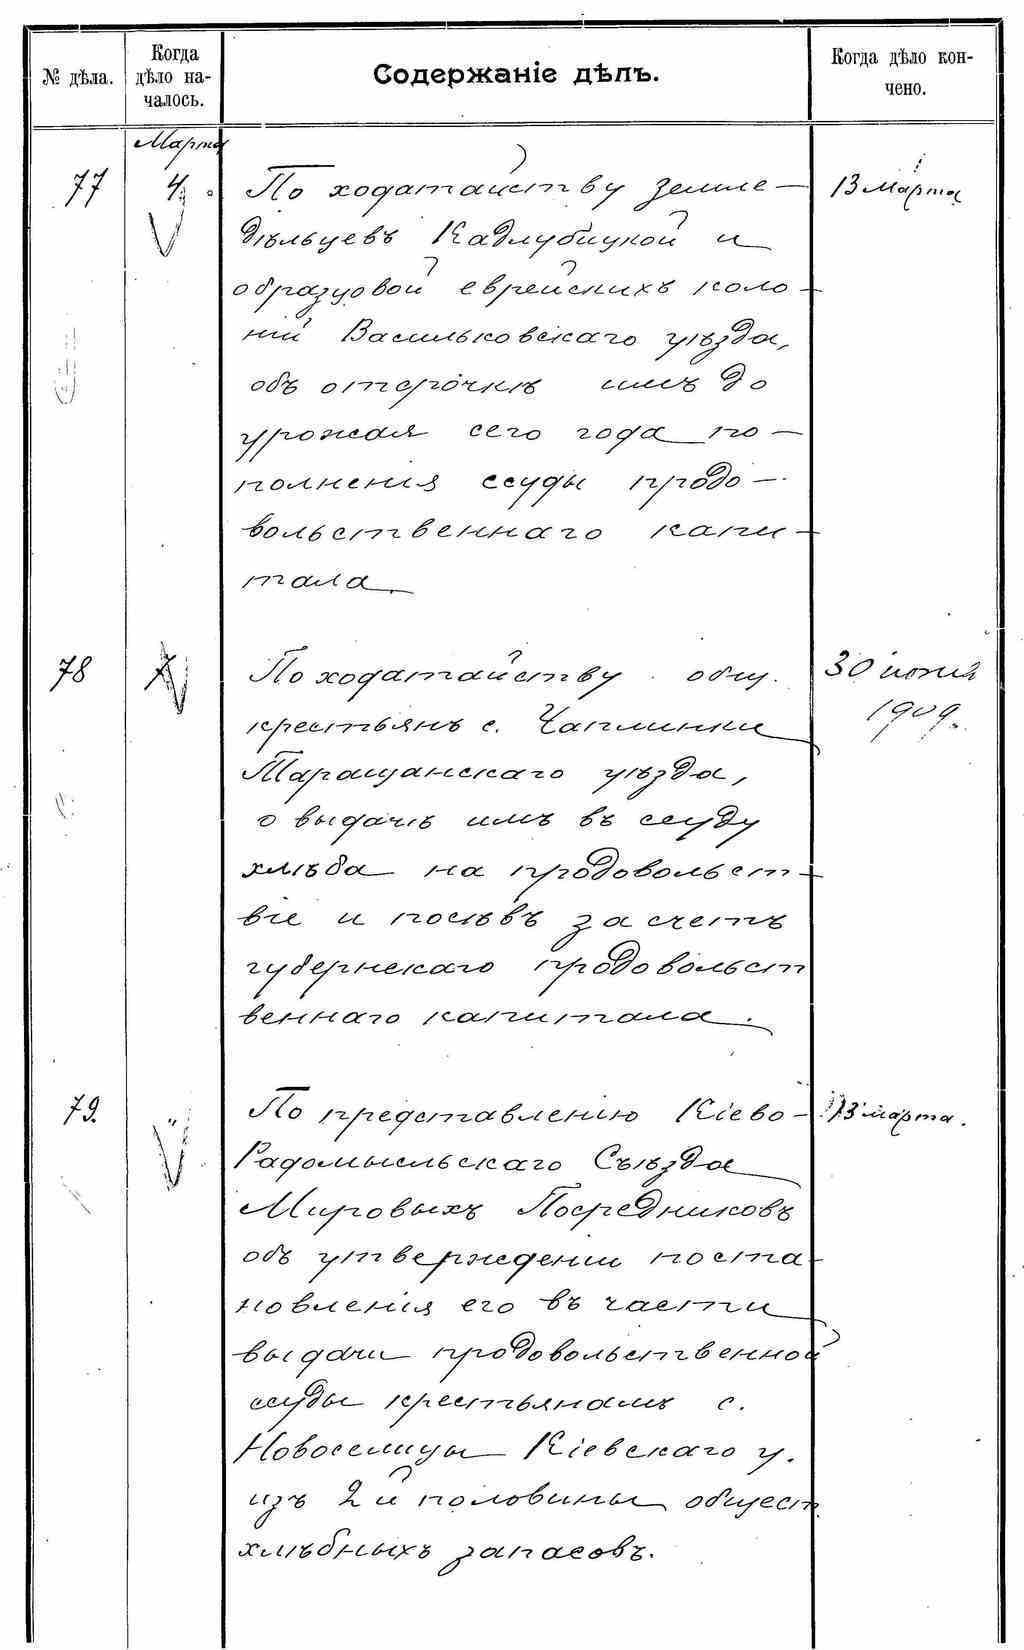 № дѣла.
Когда
дѣло на-
чалось.
Содержаніе дѣлъ.
Когда дѣло кон-
чено.
Марта
77
4
По ходатайству земле-
дѣльцевъ Кадлубицкой и
образцовой еврейскихъ коло-
ній Васильковскаго уѣзда,
объ отсрочкѣ имъ до
урожая сего года по-
полненія ссуды продо-
вольственнаго капи-
тала.
13 марта
78
7
По ходатайству общ.
крестьянъ с. Чаплинки
Таращанскаго уѣзда,
о выдачѣ имъ въ ссуду
хлѣба на продовольст-
віе и посѣвъ за счетъ
губернскаго продовольст
веннаго капитала.
30 іюня
1909.
79.
"
По представленію Кіево-
Радомысльскаго Съѣзда
Мировыхъ Посредниковъ
объ утвержденіи поста-
новленія его въ части
выдачи продовольственной
ссуды крестьянамъ с.
Новоселицы Кіевскаго у.
изъ 2й половины общест
хлѣбныхъ запасовъ.
13 марта.